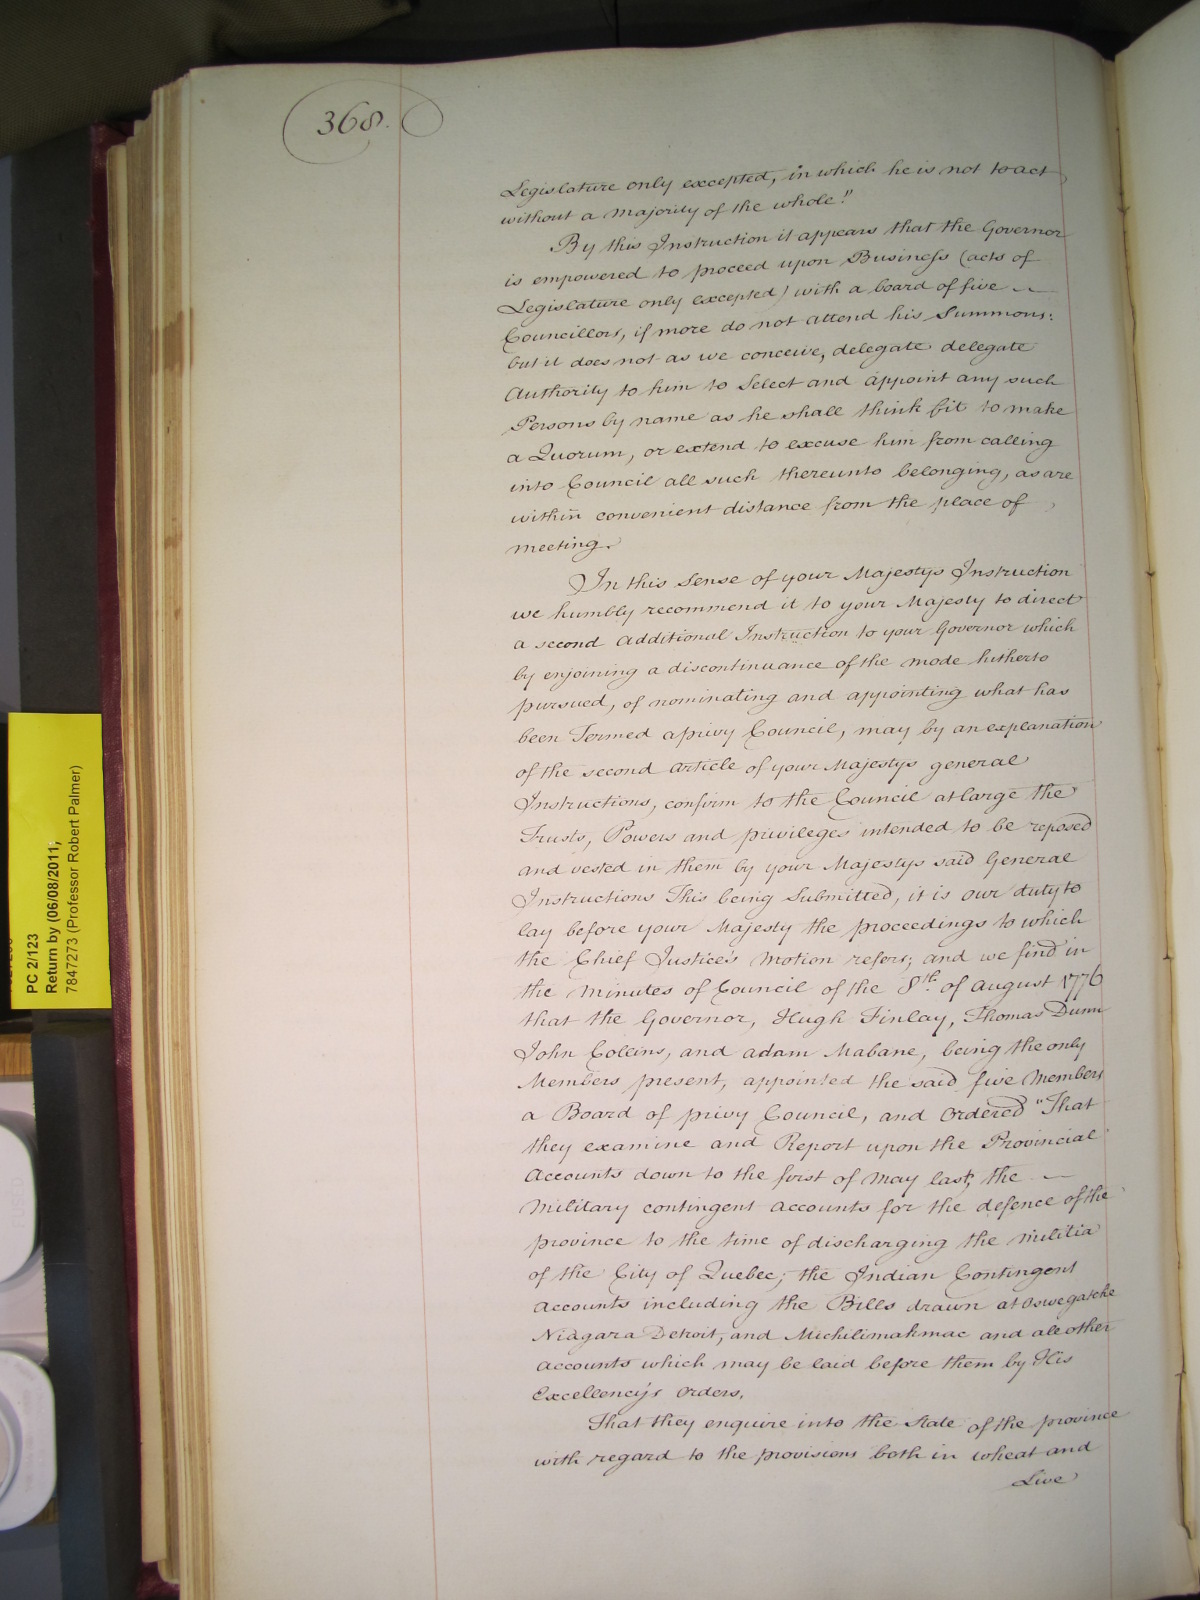 368.
Legislature only excepted, in which he is not to act
without a Majority of the whole!"
By this Instruction it appears that the Governor
is empowered to proceed upon Business (acts of
Legislature only excepted) with a board of five
Councillors, if more do not attend his Summons:
but it does not as we conceive, delegate delegate
Authority to him to Select and appoint any such
Persons by name as he shall think fit to make
a Quorum, or extend to excuse him from calling
into Council all such thereunto belonging, as are
within convenient distance from the place of
meeting.
In this Sense of your Majestys Instruction
we humbly recommend it to your Majesty to direct
a second additional Instruction to your Governor which
by enjoining a discontinuance of the mode hitherto
pursued, of nominating and appointing what has
been Termed a privy Council, may by an explanation
of the second article of your Majestys general
Instructions, confirm to the Council at large the
Trusts, Powers and privileges intended to be reposed
and vested in them by your Majestys said General
Instructions This being Submitted, it is our duty to
lay before your Majesty the proceedings to which
the Chief Justice's Motion refers; and we find in
the Minutes of Council of the 8th. of August 1776
that the Governor, Hugh Finlay, Thomas Dunn
John Collins, and adam Mabane, being the only
Members present, appointed the said five Members
a Board of privy Council, and Ordered "That
they examine and Report upon the Provincial
Accounts down to the first of May last, the
Military contingent accounts for the defence of the
province to the time of discharging the Militia
of the City of Quebec; the Indian Contingent
accounts including the Bills drawn at Oswegatche
Niagara Detroit, and Michilimakmac and all other
accounts which may be laid before them by His
Excellency's orders.
That they enquire into the State of the province
with regard to the provisions both in wheat and
Live
PC 2/123
Return by (06/08/2011;
7847273 (Professor Robert Palmer)